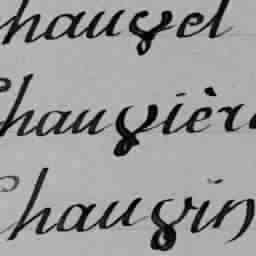 Chauvel
Chauvière
Chauvin